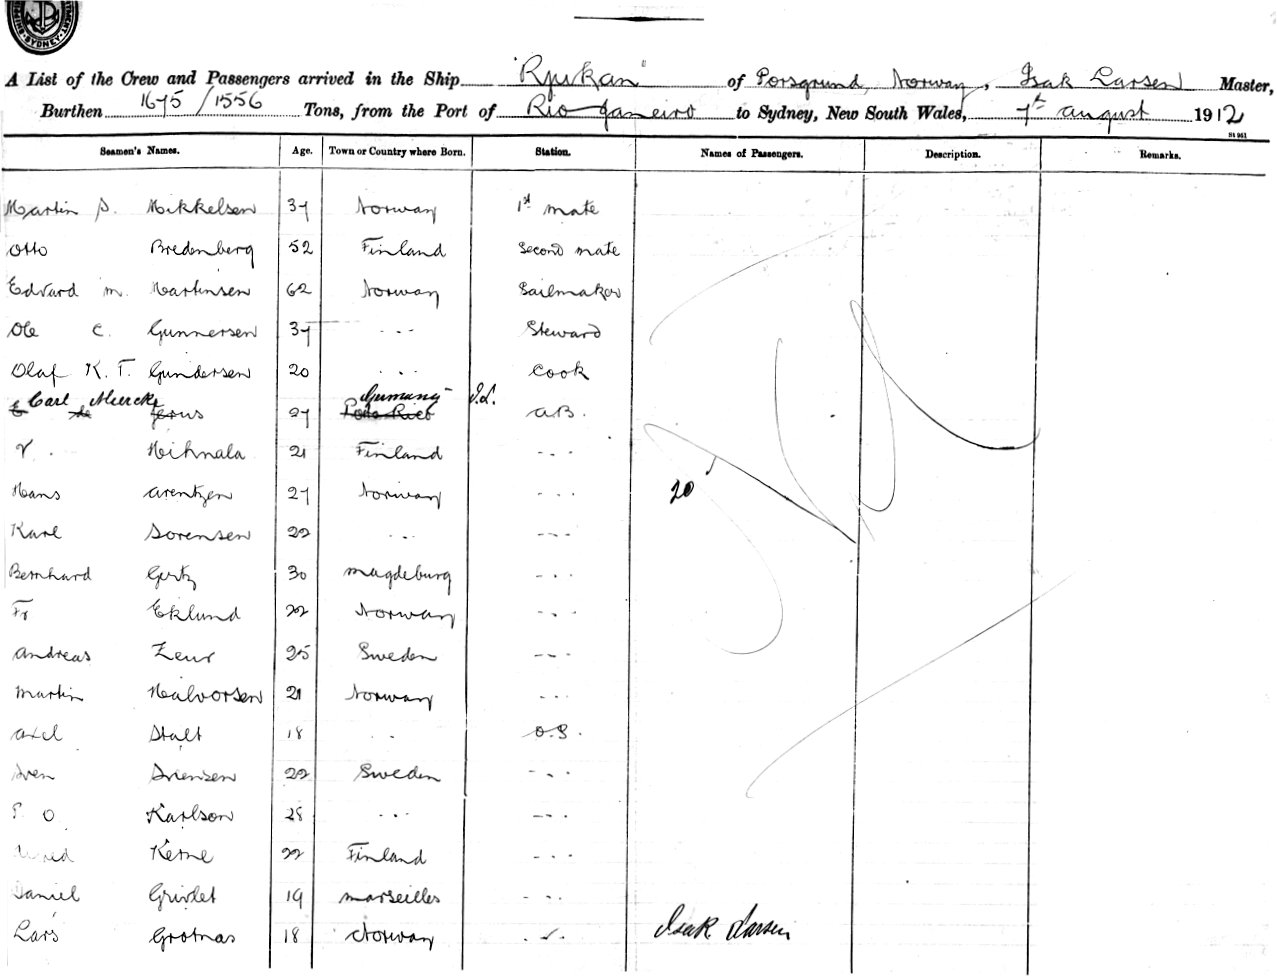 SYDNEY
A List of the Crew and Passengers arrived in the Ship "Rjukan" of Porsgrund, Norway, Isak Larsen Master,
Burthen 1675/1556 Tons, from the Port of Rio Janeiro to Sydney, New South Wales, 7th August 1912
St 961
Seamen's Names. Age. Town or Country where Born. Station. Names of Passengers. Description. Remarks.
Martin P. Mikkelsen 37 Norway 1st mate
Otto Bredenberg 52 Finland Second mate
Edvard M. Martinsen 62 Norway Sailmaker
Ole C. Gunnersen 37 - - - Steward
Olaf K. T. Gundersen 20 - - - Cook
Carl Muercke Germany I.L.
de Jesus 27 Porto Rico A.B.
V. Hihnala 21 Finland - - -
Hans Arentzen 27 Norway - - - 20
Karl Sorensen 22 - - - - - -
Bernhard Gertz 30 Magdeburg - - -
Fr Eklund 22 Norway - - -
Andreas Zeur 25 Sweden - - -
Martin Halvorsen 21 Norway - - -
Axel Stalt 18 - - O.S.
Sven Svensen 22 Sweden - - -
P. O. Karlson 28 - - - - - -
Ketne 22 Finland - - -
Daniel Grivlet 19 Marseilles - - -
Lars Grotnas 18 Norway - - - Isak Larsen